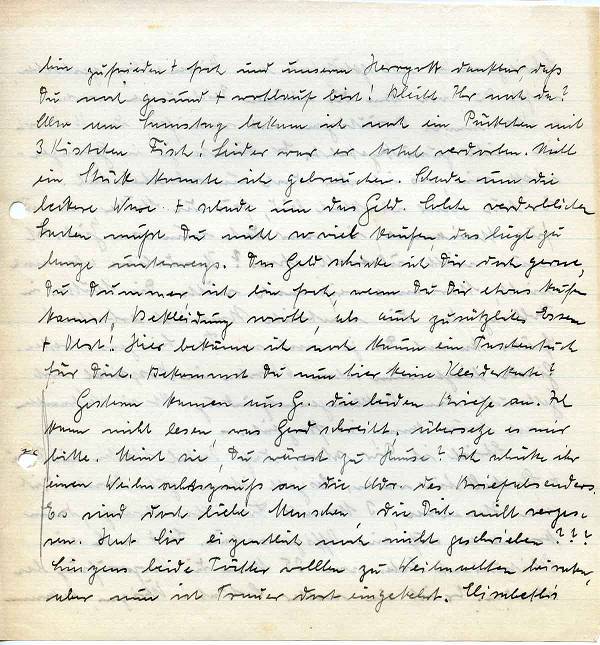 bin zufrieden + froh und unserm Herrgott dankbar, daß
Du noch gesund + wohlauf bist! Bleibt Ihr noch da?
Also am Samstag bekam ich noch ein Päckchen mit
3 Kistchen Fisch! Leider war er total verdorben. Nicht
ein Stück konnte ich gebrauchen. Schade um die
leckere Ware + schade um das Geld. Solche verderblichen
Sachen mußt Du nicht so viel kaufen, das liegt zu
lange unterwegs. Das Geld schicke ich Dir doch gerne,
Du Dummer, ich bin froh, wenn Du Dir etwas kaufen
kannst, Bekleidung sowohl, als auch zusätzliches Essen
+ Obst! Hier bekäme ich noch kaum ein Taschentuch
für Dich. Bekommst Du nun hier keine Kleiderkarte?
Gestern kamen aus G. die beiden Briefe an. Ich
kann nicht lesen, was Gerd schreibt, übersetze es mir
bitte. Meint sie, Du wärest zu Hause? Ich schicke ihr
einen Weihnachtsgruß an die Adr. des Briefabsenders.
Es sind doch liebe Menschen, die Dich nicht verges-
sen. Hat eigentlich noch nicht geschrieben???
beide Töchter wollten zu Weihnachten heiraten,
aber nun ist Trauer dort eingekehrt. Elisabeths